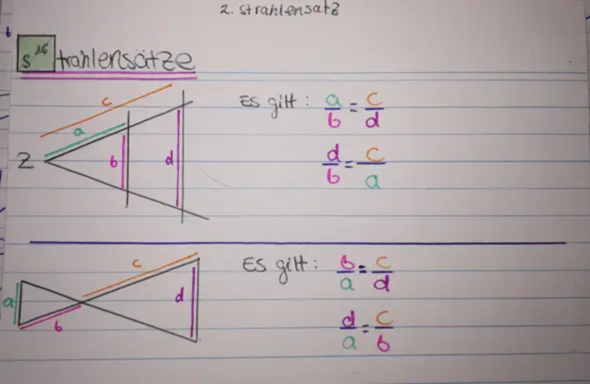 2. Strahlensatz
S16 trahlensätze
c
a
Z b d
Es gilt: a/b = c/d
d/b = c/a
c
a d
b
Es gilt: b/a = c/d
d/a = c/b